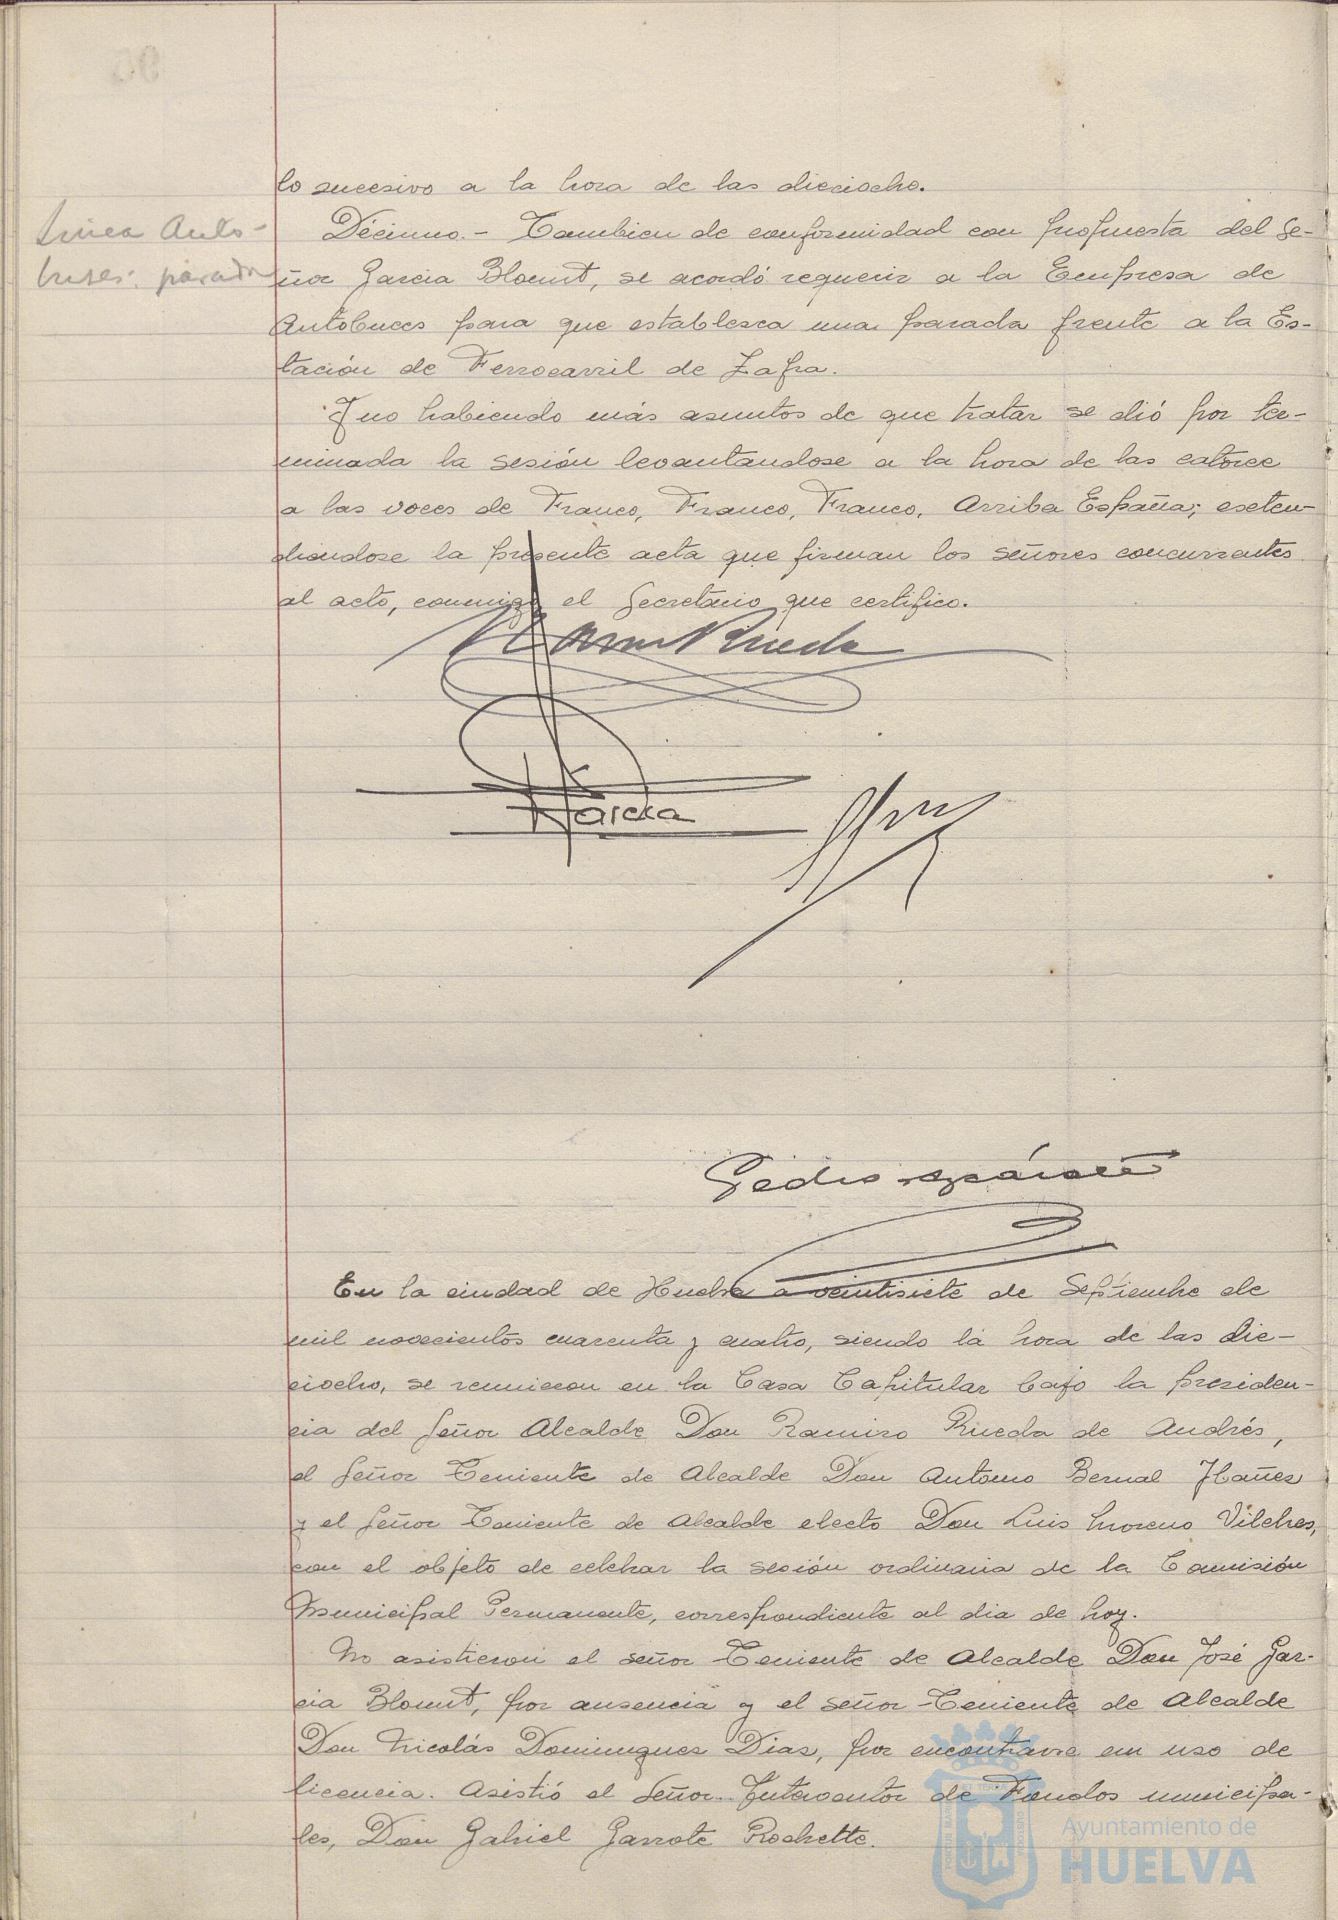 lo sucesivo a la hora de las dieciocho.
Linea Auto-
buses: parada
Décimo.- Tambien de conformidad con propuesta del Se-
ñor Garcia Blount, se acordó requerir a la Empresa de
Autobuces para que establesca una parada frente a la Es-
tación de Ferrocarril de Zafra.
Y no habiendo más asuntos de que tratar se dió por ter-
minada la sesión levantandose a la hora de las catorce
a las voces de Franco, Franco, Franco, Arriba España; exten-
diendose la presente acta que firman los señores concurrentes
al acto, conmigo el Secretario que certifico.
Ramiro Rueda
Garcia
Pedro
En la ciudad de Huelva a veintisiete de Septiembre de
mil novecientos cuarenta y cuatro, siendo la hora de las die-
ciocho, se reunieron en la Casa Capitular bajo la presiden-
cia del Señor Alcalde Don Ramiro Rueda de Andrés,
el Señor Teniente de Alcalde Don Antonio Bernal Ybañez
y el Señor Teniente de Alcalde electo Don Luis Moreno Vilches,
con el objeto de celebrar la sesión ordinaria de la Comisión
Municipal Permanente, correspondiente al dia de hoy.
No asistieron el señor Teniente de Alcalde Don José Gar-
cia Blount, por ausencia y el señor Teniente de Alcalde
Don Nicolás Dominguez Dias, por encontrarse en uso de
licencia. Asistió el Señor Interventor de Fondos municipa-
les, Don Gabriel Garrote Rochette.
Ayuntamiento de
HUELVA